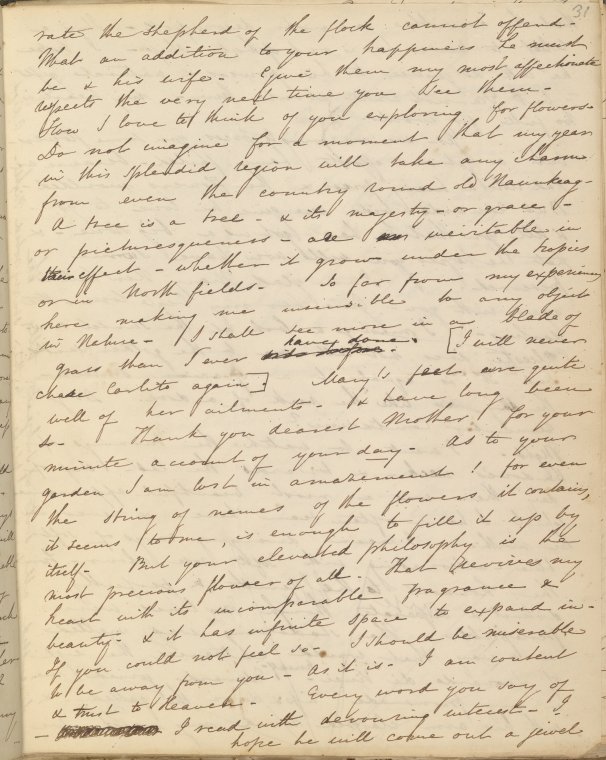 31
rate the shepherd of the flock cannot offend -
What an addition to your happiness he must
be & his wife - Give them my most affectionate
respects the very next time you see them -
How I love to think of you exploring for flowers -
Do not imagine for a moment that my year
in this splendid region will take any charm
from even the country round old Naumkeag -
A tree is a tree - & its majesty - or grace -
or picturesqueness - are inevitable in
their effect - whether it grow under the tropics
or in North fields - So far from my experience
here making me insensible to any object
in Nature - I shall see more in a blade of
grass than I ever have done. [I will never
chase Carlito again]. Mary's feet are quite
well of her ailments - & have long been
so - Thank you dearest Mother for your
minute account of your day - As to your
garden I am lost in amazement! for even
the string of names of the flowers it contains,
it seems to me, is enough to fill it up by
itself - But your elevated philosophy is the
most precious flower of all. That revives my
heart with its incomparable fragrance &
beauty - & it has infinite space to expand in -
If you could not feel so - I should be miserable
to be away from you - As it is - I am content
& trust to Heaven - Every word you say of
- I read with devouring interest - I
hope he will come out a jewel